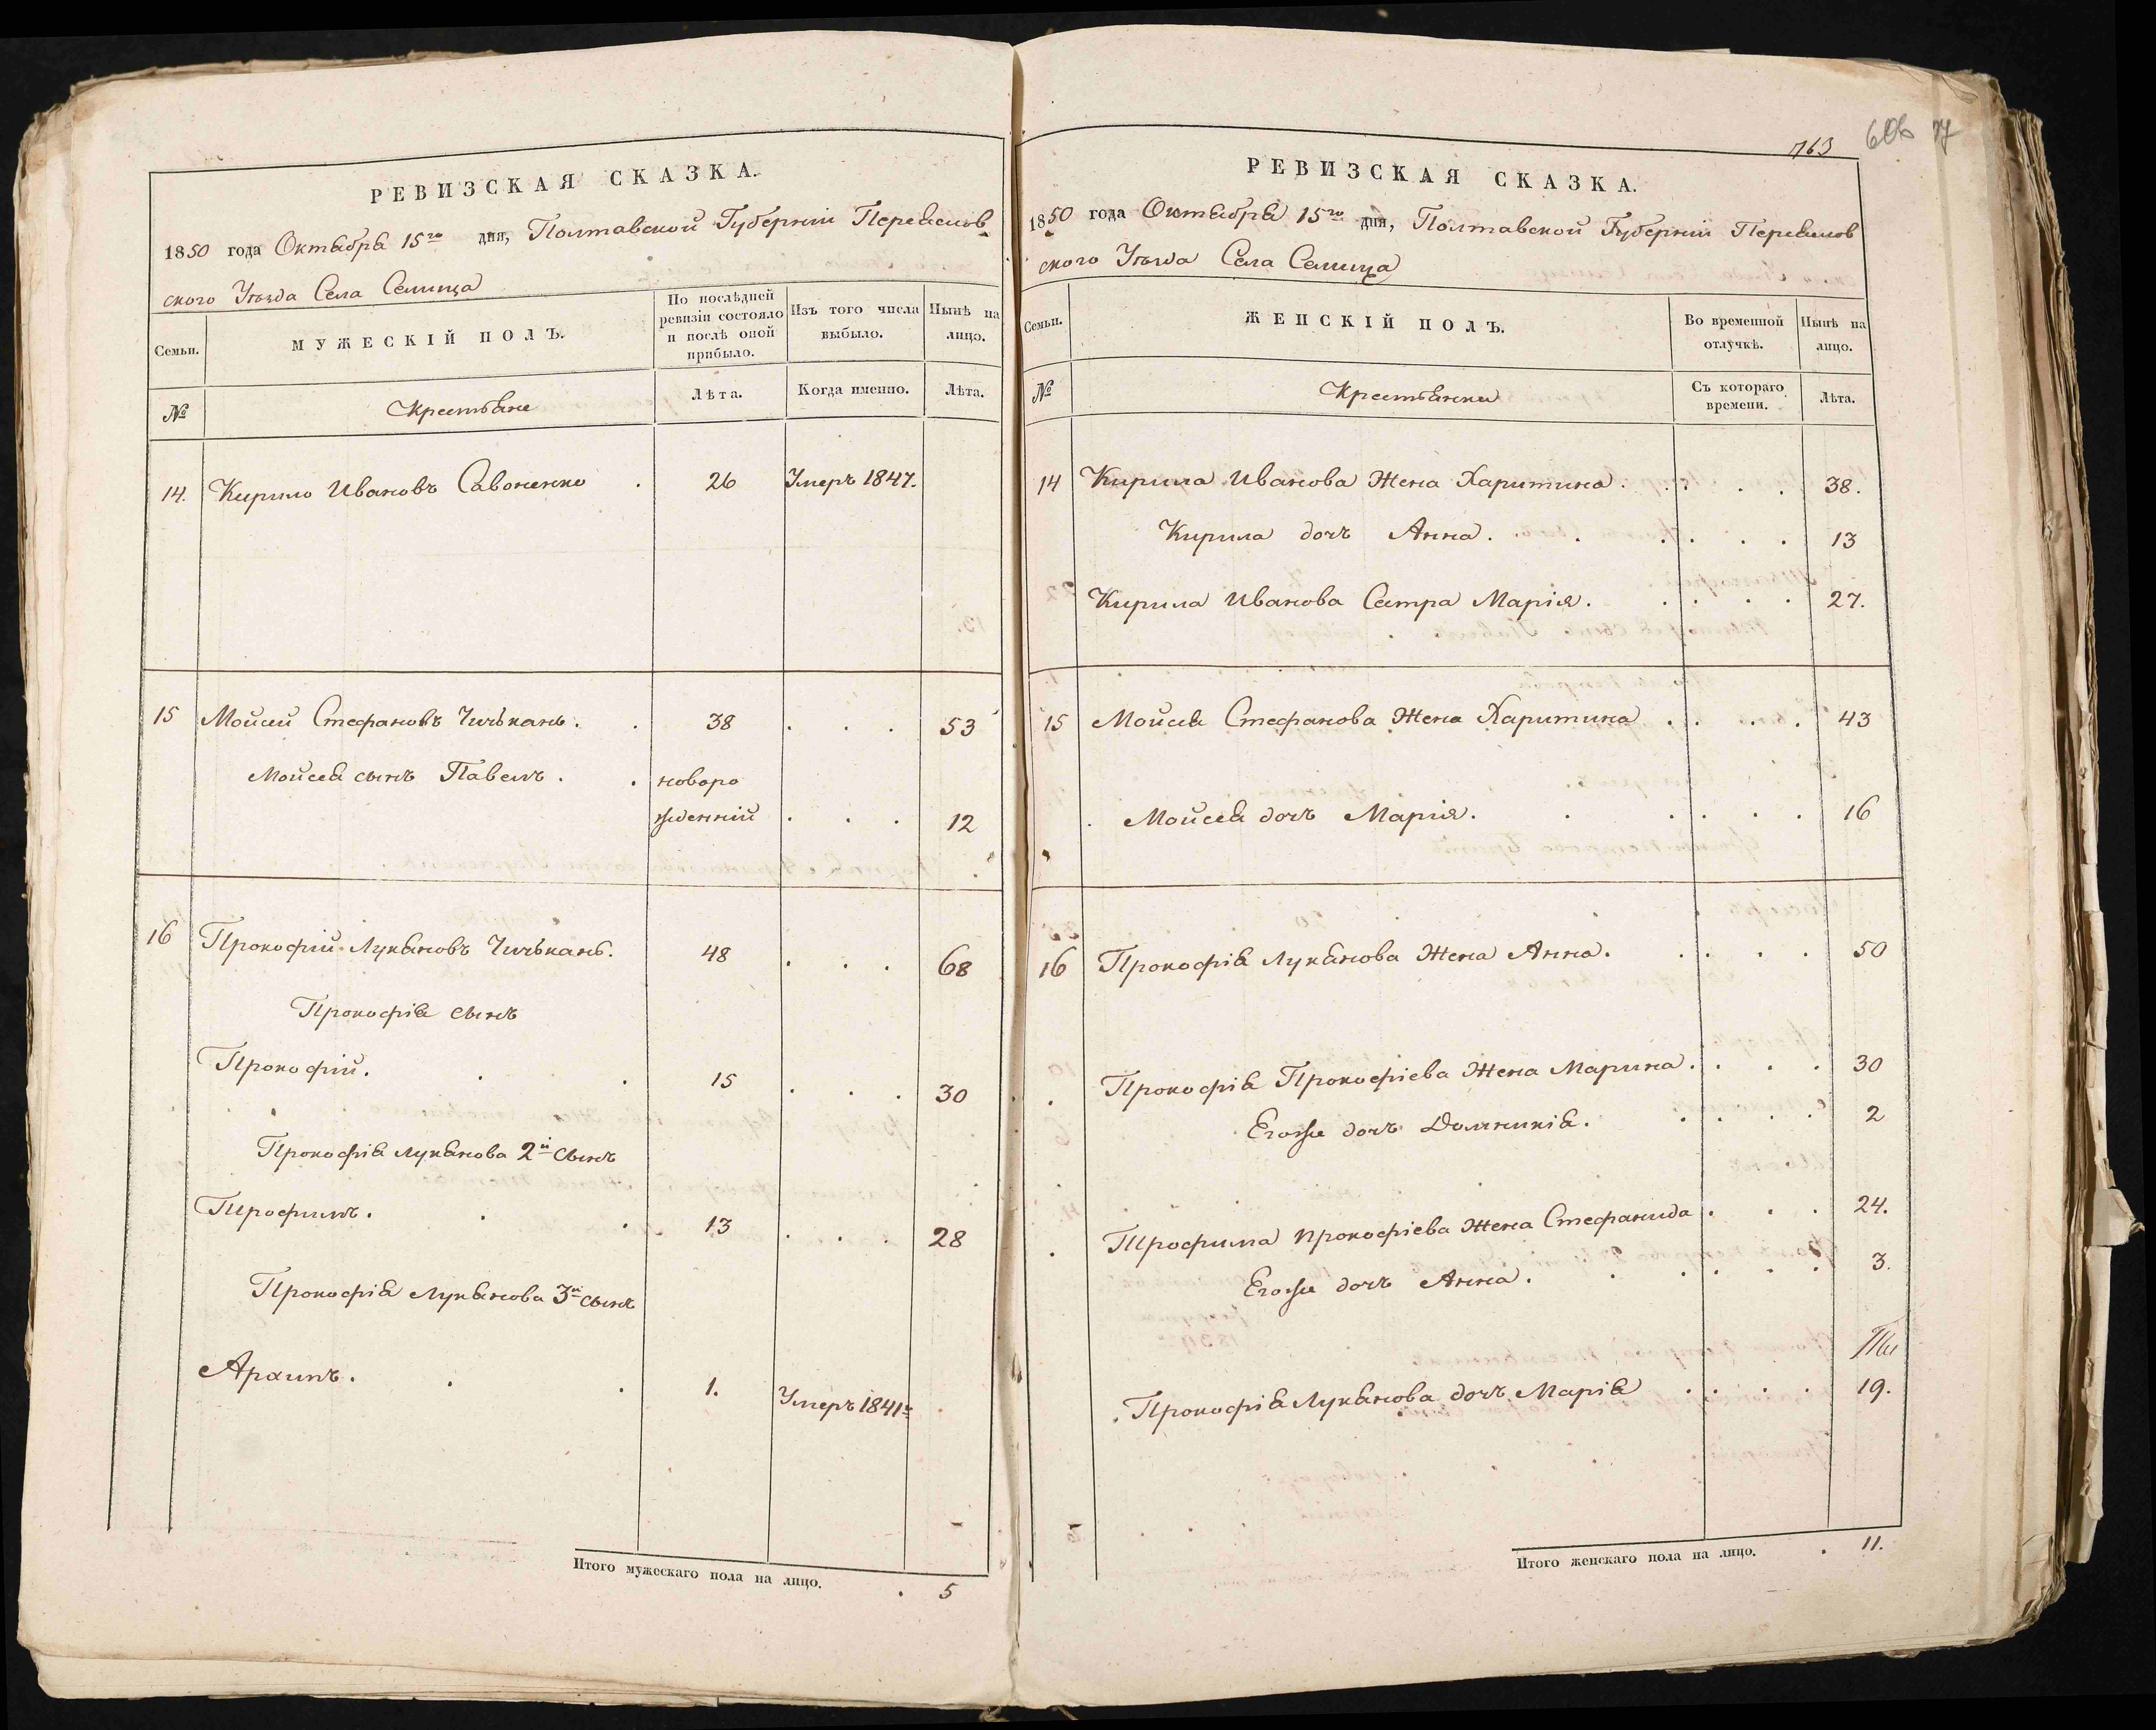 РЕВИЗСКАЯ СКАЗКА.
1850 года Октября 15го дня, Полтавской Губернии Переяслов
ского Уѣзда Села Селища
Семьи.
МУЖЕСКІЙ ПОЛЪ.
По послѣдней ревизіи состояло и послѣ оной прибыло.
Изъ того числа выбыло.
Нынѣ на лицо.
№
Крестьяне
Лѣта.
Когда именно.
Лѣта.
14. Кирило Ивановъ Савоненко . 26 Умеръ 1847.
15 Мойсей Стефановъ Чичькань . . 38 . . . 53
Мойсея сынъ Павелъ . . новоро
жденній . . . 12
16 Прокофій Лукяновъ Чичькань. 48 . . . 68
Прокофія сынъ
Прокофій. . . 15 . . . 30
Прокофія Лукянова 2й сынъ
Трофимъ. . . 13 . . . 28
Прокофія Лукянова 3й сынъ
Архипъ. . . 1. Умеръ 1841го
Итого мужескаго пола на лицо. . 5
763 77
РЕВИЗСКАЯ СКАЗКА.
1850 года Октября 15го дня, Полтавской Губерніи Переяслов
ского Уѣзда Села Селища
Семьи.
ЖЕНСКІЙ ПОЛЪ.
Во временной отлучкѣ.
Нынѣ на лицо.
№
Крестьянки
Съ котораго времени.
Лѣта.
14 Кирила Иванова Жена Харитина . . . . 38.
Кирила дочь Анна . . . . . . 13
Кирила Иванова Сестра Марія . . . . . 27.
15 Мойсея Стефанова Жена Харитина . . . . 43
Мойсея дочь Марія. . . . . . . 16
16 Прокофія Лукянова Жена Анна. . . . . 50
Прокофія Прокофіева Жена Марина . . . . 30
Егоже дочь Домникія. . . . . 2
Трофима Прокофіева Жена Стефанида . . . 24.
Егоже дочь Анна . . . . . . 3.
Прокофія Лукянова дочь Марія . . . . 19.
Итого женскаго пола на лицо. . 11.